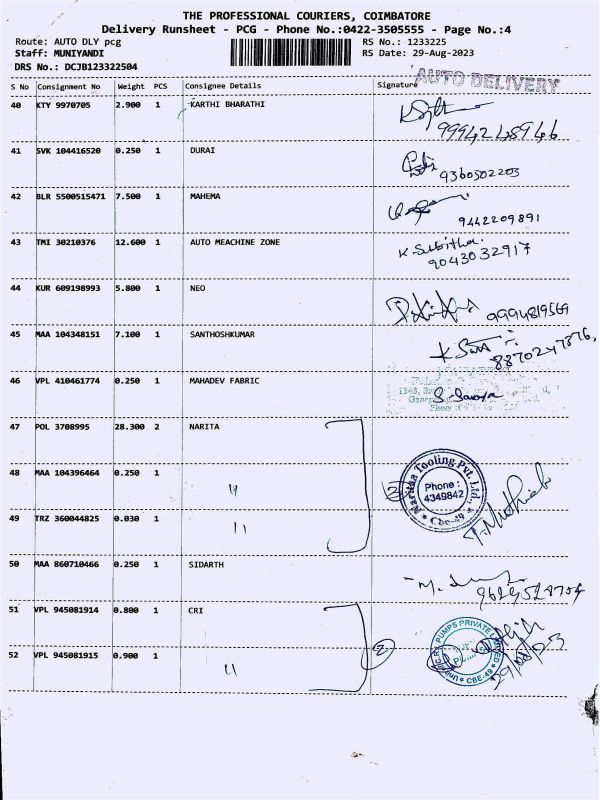 THE PROFESSIONAL COURIERS, COIMBATORE
Delivery Runsheet - PCG - Phone No.:0422-3505555 - Page No.:4
Route: AUTO DLY pcg RS No.: 1233225
Staff: MUNIYANDI RS Date: 29-Aug-2023
DRS No.: DCJB123322504
AUTO DELIVERY
S No Consignment No Weight PCS Consignee Details Signature
40 KTY 9970705 2.900 1 KARTHI BHARATHI
9994248946
41 SVK 104416520 0.250 1 DURAI
9360502203
42 BLR 5500515471 7.500 1 MAHEMA
9442209891
43 TMI 30210376 12.600 1 AUTO MEACHINE ZONE K. Subitha.
9043032917
44 KUR 609198993 5.800 1 NEO
9994819569
45 MAA 104348151 7.100 1 SANTHOSHKUMAR
8870247876,
46 VPL 410461774 0.250 1 MAHADEV FABRIC
47 POL 3708995 28.300 2 NARITA
48 MAA 104396464 0.250 1 "
Naritaa Tooling Pvt. Ltd.,
Phone :
4349842
Cbe-49
49 TRZ 360044825 0.030 1 "
50 MAA 860710466 0.250 1 SIDARTH
51 VPL 945081914 0.800 1 CRI
PUMPS PRIVATE LIMITED
CBE-49
29/08/23
52 VPL 945081915 0.900 1 "